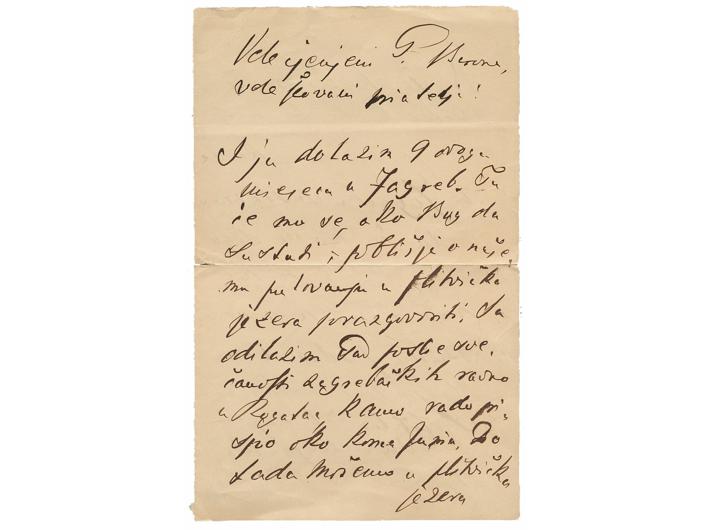 Velecijenjeni G. Barune,
veleštovani priatelju!
I ja dolazim 9 ovoga
mjeseca u Zagreb. Tu
će mo se, ako Bog da
sastati i pobližje o naše,
mu putovanju u plitvička
jezera porazgovoriti. Ja
odilazim Tad poslie sve,
čanosti zagrebačkih ravno
u kamo rado pri,
spio oko konca Junia. Do
tada možemo u plitvička
jezera